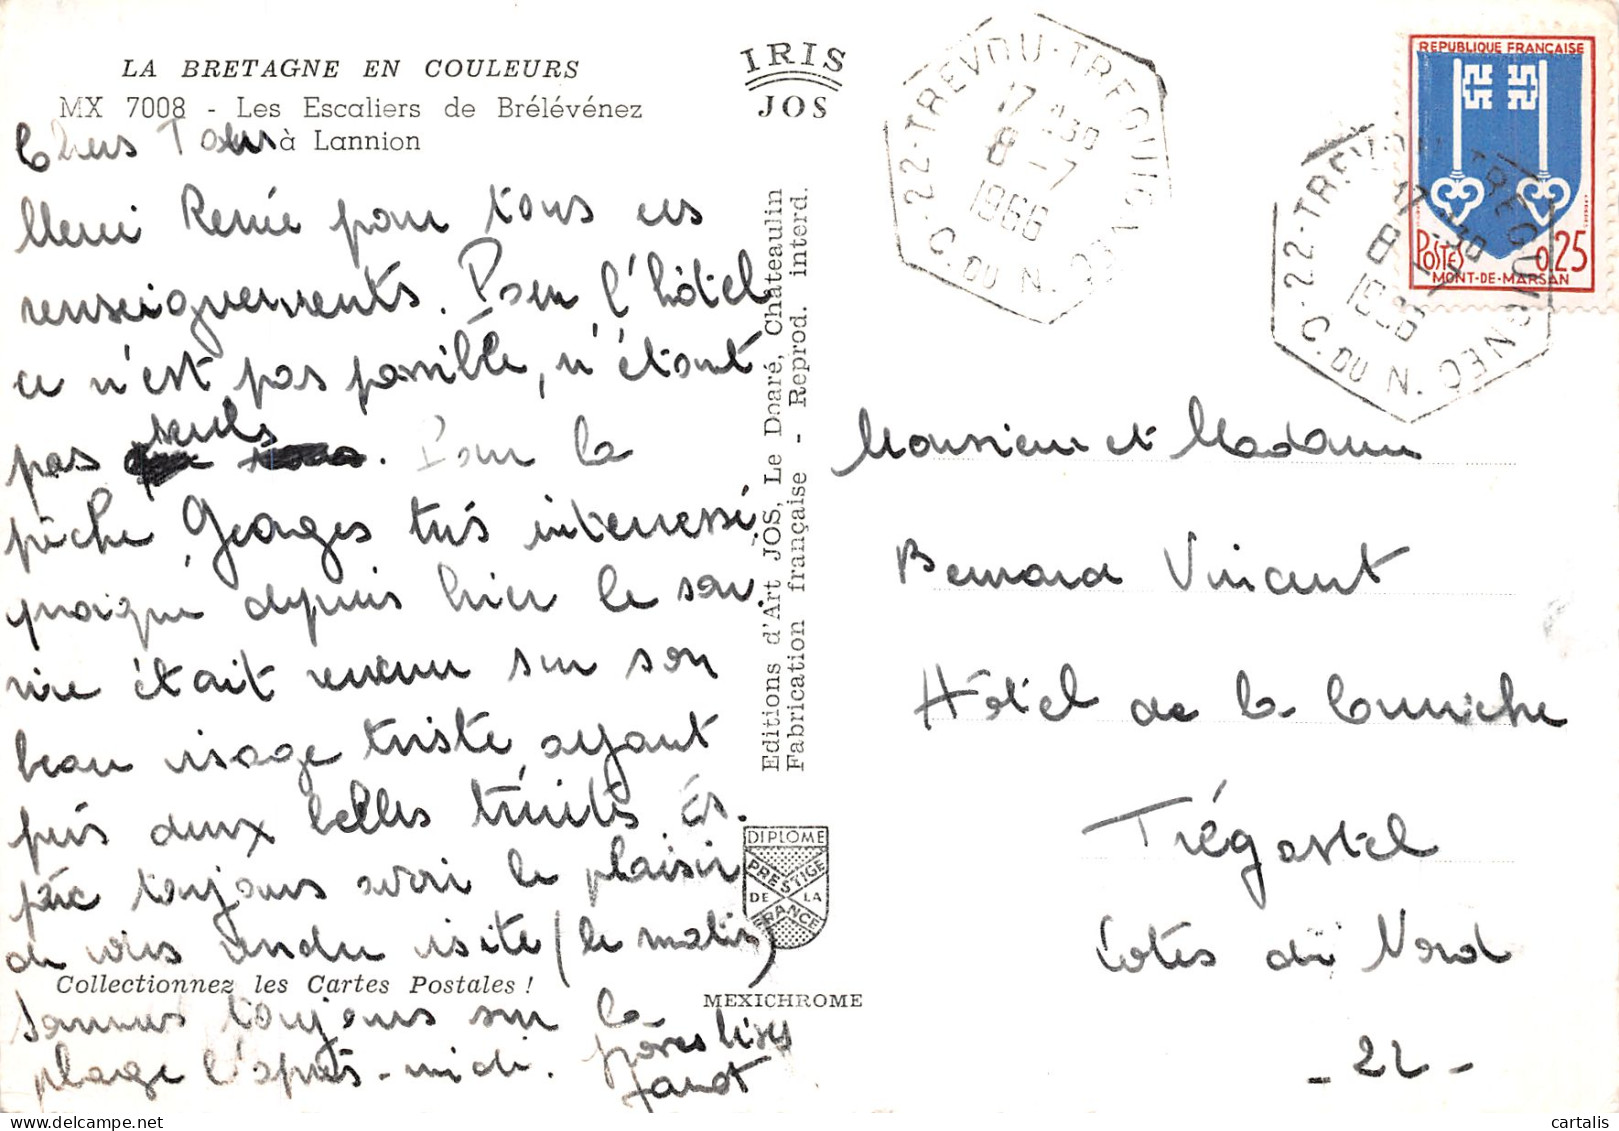 LA BRETAGNE EN COULEURS
MX 7008 - Les Escaliers de Brélévénez
à Lannion
IRIS
JOS
Chers Tous
Merci Renée pour tous ces
renseignements. Pour l'hôtel
ce n'est pas possible, n'étant
pas seuls. Pour la
pêche Georges très interressé
quoique depuis hier le sou
rire était revenu sur son
beau visage triste ayant
pris deux belles truites Es.
père toujours avoir le plaisir
de vous rendre visite (le matin)
Collectionnez les Cartes Postales !
sommes toujours sur la
plage l'après-midi.
Editions d'Art JOS, Le Doaré, Chateaulin
Fabrication française - Reprod. interd.
DIPLOME
PRESTIGE
DE LA
FRANCE
MEXICHROME
22-TREVOU-TREGUIGNEC
17 H30
8 - 7
1966
C. DU N.
REPUBLIQUE FRANÇAISE
POSTES 0,25
MONT-DE-MARSAN
22-TREVOU-TREGUIGNEC
17 30
8 - 7
1966
C. DU N.
Monsieur et Madame
Bernard Vincent
Hôtel de la Corniche
Trégastel
Cotes du Nord
- 22 -
cartalis